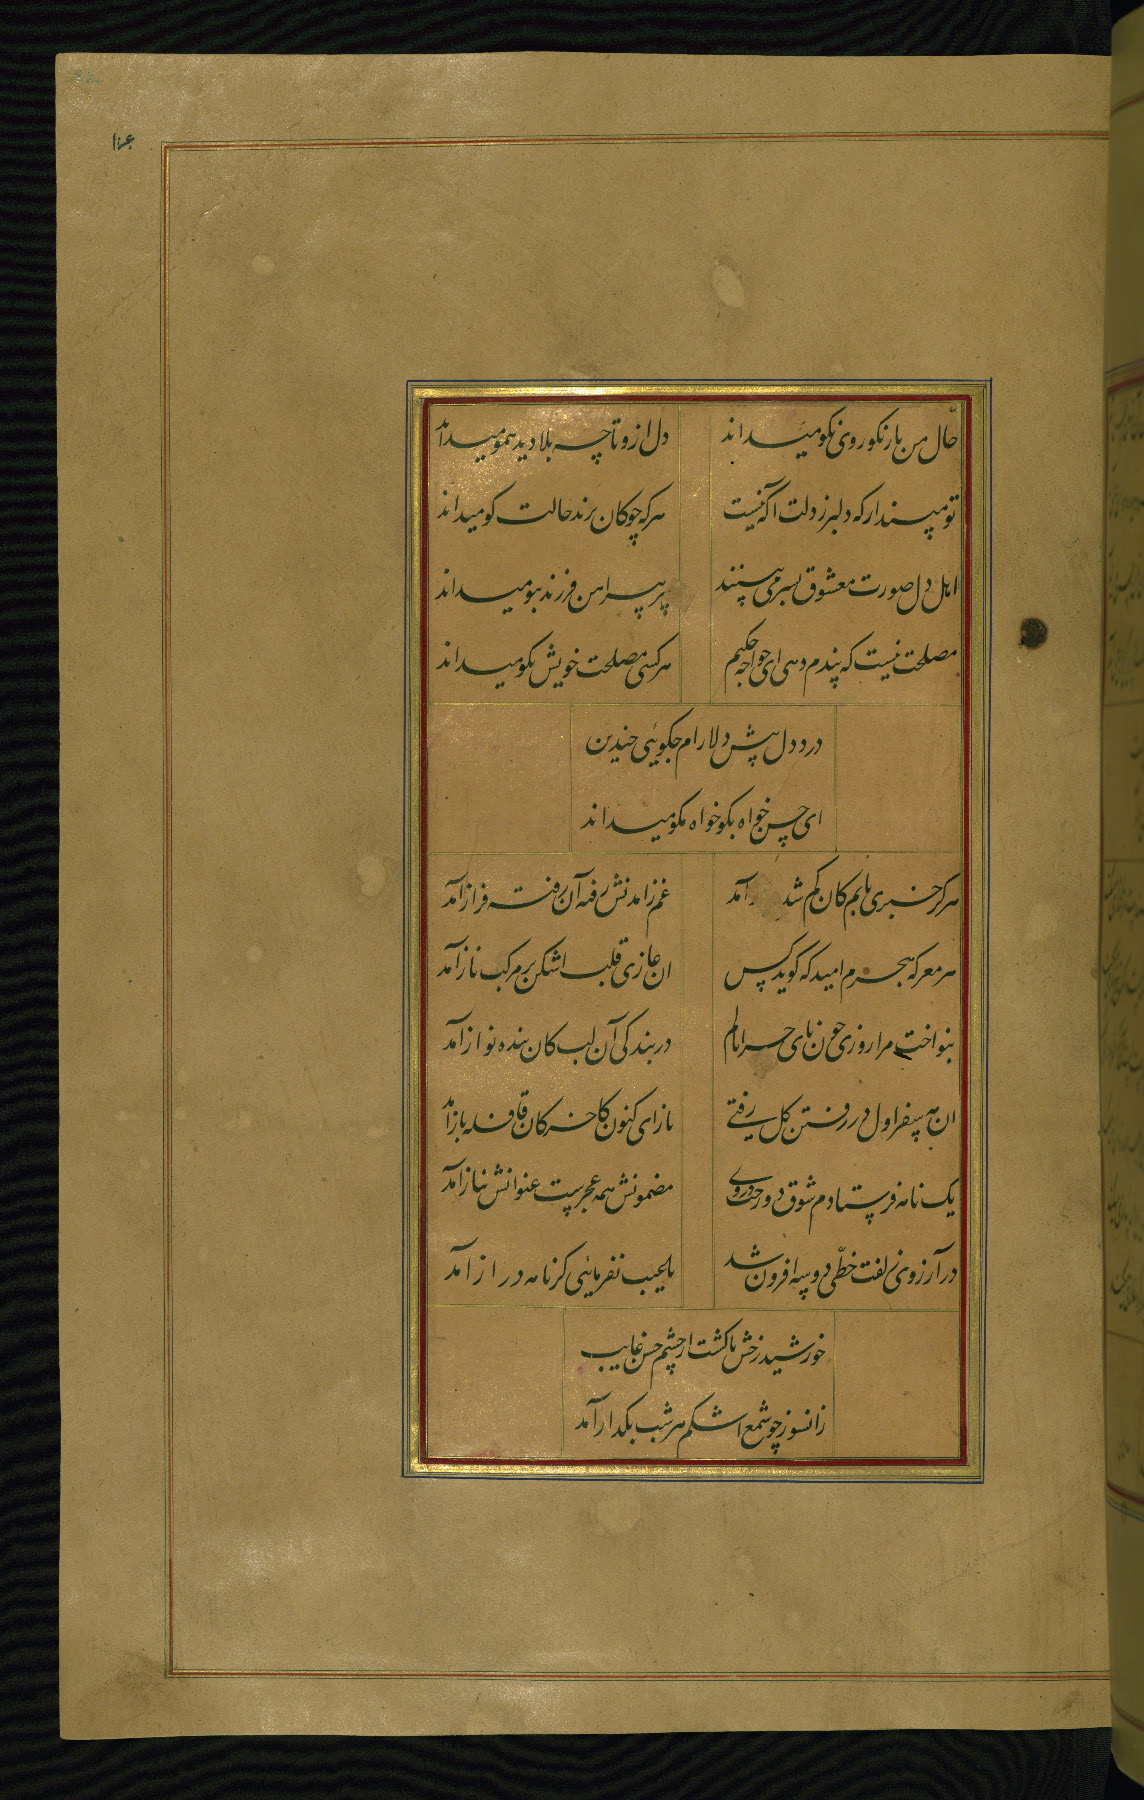 ۱۰۶
حال من یار نکو روی نکو میداند
دل ازو تا چه بلا دید همو میداند
تو مپندار که دلبر ز دلت آگه نیست
هر که چوکان زند حالت کو میداند
اهل دل صورت معشوق بسر می بینند
پیر پیراهن فرزند ببو میداند
مصلحت نیست که پندم دهی ای خواجه حکیم
هر کسی مصلحت خویش نکو میداند
درد دل پیش دلارام چکوئی چندین
ای حسن خواه بکو خواه مکو میداند
هر کز خبری یابم کان کم شد آمد
غم زآمدنش رفته آن رفته فراز آمد
هر معرکه هجرم امید که کوید پس
ان غازی قلب اشکن بر مرکب ناز آمد
بنواخت مرا روزی چون نای
در بندکی آن لب کان بنده نواز آمد
ان به سفر اول در رفتن کل رفتی
باز ای کنون کاخر کان قافله باز آمد
یک نامه فرستادم شوق
مضمونش همه عجزیست عنوانش نیاز آمد
در آرزوی زلفت خطی دو سه افزون شد
تا عیب نفرمائی کر نامه دراز آمد
خورشید رخش تا کشت از چشم حسن غایب
زانسوز چو شمع اشکم هر شب بکداز آمد